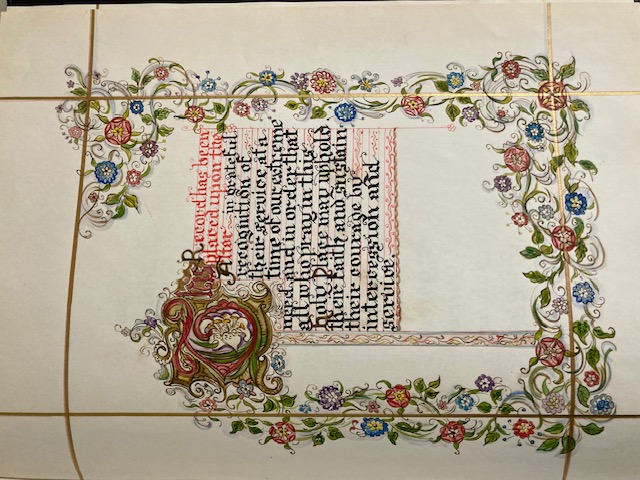 Record has been
placed upon this
Altar in grateful
recognition of
their service at a
time of extreme
need and in order that
all of praying in this
Holy Place may uphold
them and sustain
their courage by
intercession and
service